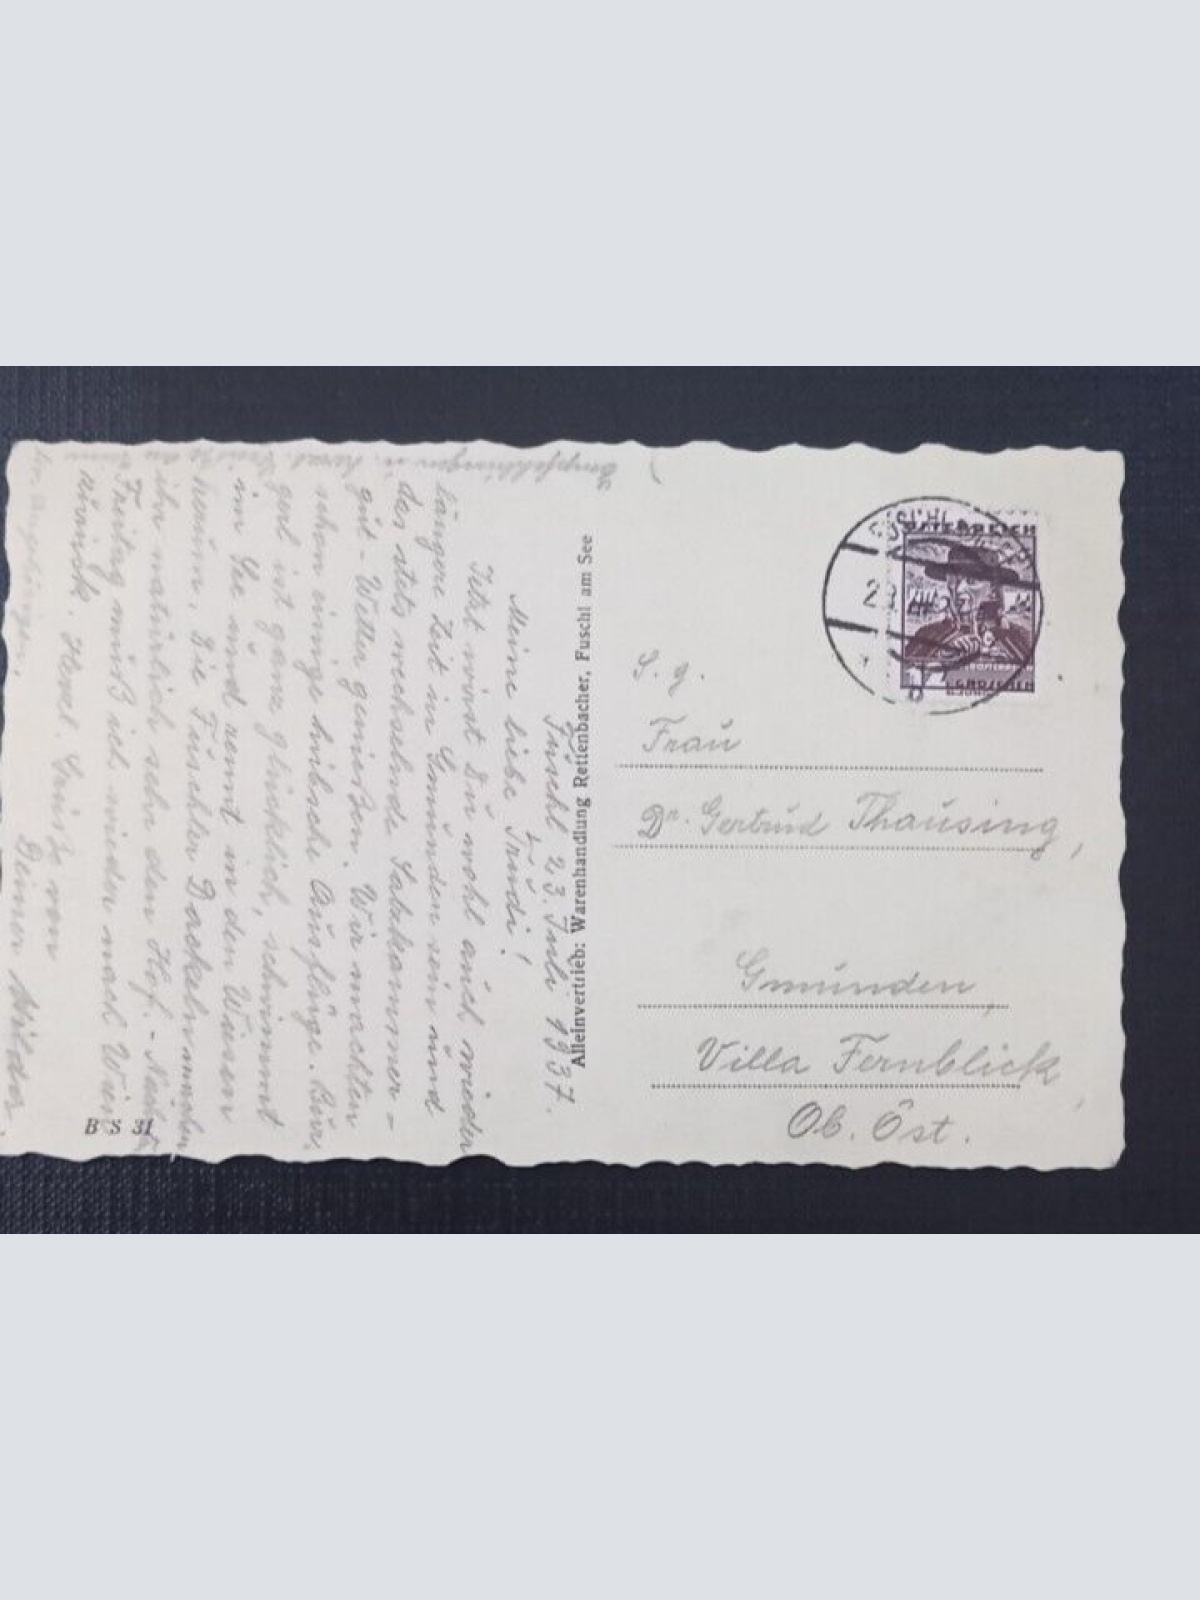 Fuschl 23. Juli 1937.
Meine liebe Trudi!
Jetzt wirst Du wohl auch wieder
längere Zeit in Gmunden sein und
das stets wechselnde Salzkammer-
gut-Wetter genießen. Wir machten
schon einige hübsche Ausflüge.
ist ganz glücklich, schwimmt
im See und rennt in den Wiesen
herum. Die Fuschler Dackeln
ihn natürlich sehr den Hof. -
Freitag muß ich wieder nach Wien
zurück. Grüße von
Deiner
Empfehlungen u.
Alleinvertrieb: Warenhandlung Rettenbacher, Fuschl am See
B S 31
FUSCHL
ÖSTERREICH
S. g.
Frau
Dr. Gertrud Thausing,
Gmunden,
Villa Fernblick
Ob. Öst.